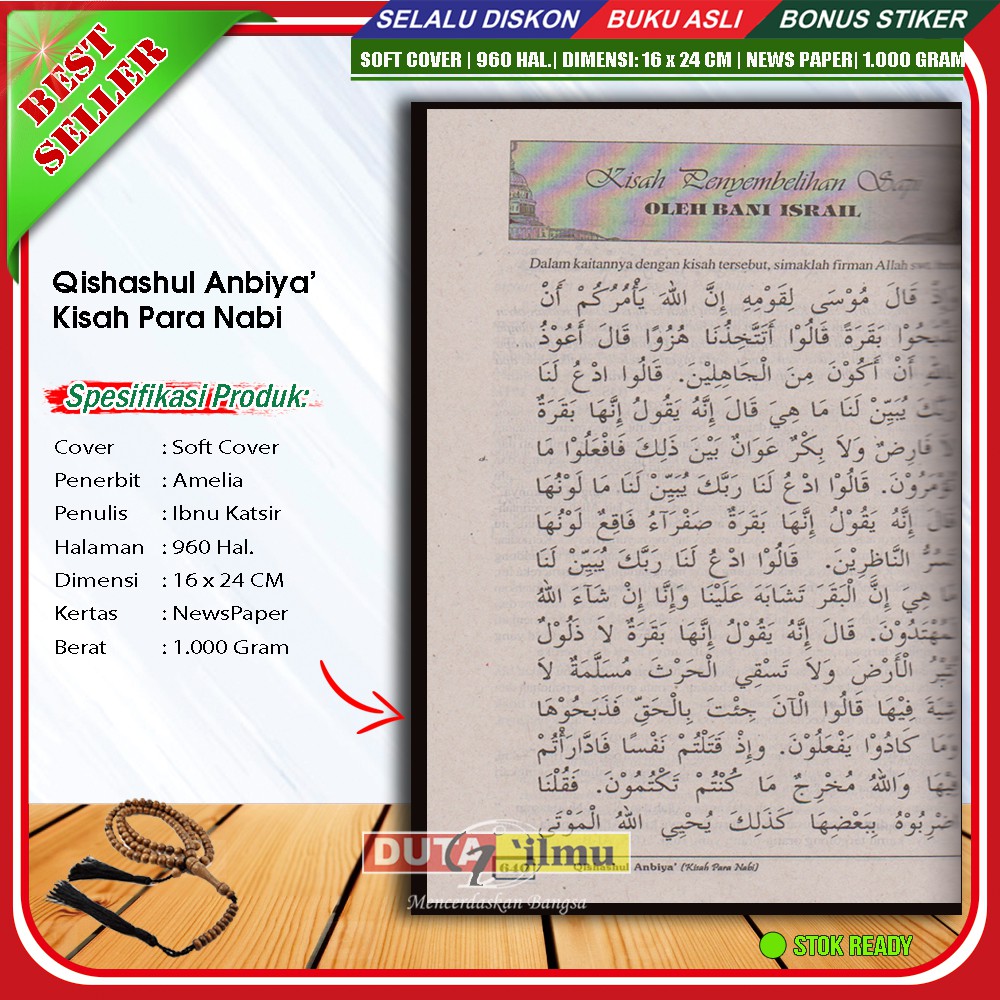 BEST
SELLER
SELALU DISKON
BUKU ASLI
BONUS STIKER
SOFT COVER | 960 HAL.| DIMENSI: 16 x 24 CM | NEWS PAPER| 1.000 GRAM
Qishashul Anbiya’
Kisah Para Nabi
Spesifikasi Produk:
Cover : Soft Cover
Penerbit : Amelia
Penulis : Ibnu Katsir
Halaman : 960 Hal.
Dimensi : 16 x 24 CM
Kertas : NewsPaper
Berat : 1.000 Gram
Kisah Penyembelihan Sapi
OLEH BANI ISRAIL
Dalam kaitannya dengan kisah tersebut, simaklah firman Allah swt.
قَالَ مُوْسَى لِقَوْمِهِ إِنَّ اللهَ يَأْمُرُكُمْ أَنْ
بَقَرَةً قَالُوْا أَتَتَّخِذُنَا هُزُوًا قَالَ أَعُوْذُ
أَنْ أَكُوْنَ مِنَ الْجَاهِلِيْنَ. قَالُوا ادْعُ لَنَا
يُبَيِّنْ لَنَا مَا هِي قَالَ إِنَّهُ يَقُولُ إِنَّهَا بَقَرَةٌ
فَارِضٌ وَلاَ بِكْرٌ عَوَانٌ بَيْنَ ذَلِكَ فَافْعَلُوْا مَا
قَالُوْا ادْعُ لَنَا رَبَّكَ يُبَيِّنْ لَنَا مَا لَوْنُهَا
إِنَّهُ يَقُوْلُ إِنَّهَا بَقَرَةٌ صَفْرَآءُ فَاقِعٌ لَوْنُهَا
النَّاظِرِيْنَ. قَالُوْا ادْعُ لَنَا رَبَّكَ يُبَيِّنْ لَنَا
هِيَ إِنَّ الْبَقَرَ تَشَابَهَ عَلَيْنَا وَإِنَّا إِنْ شَآءَ اللهُ
قَالَ إِنَّهُ يَقُوْلُ إِنَّهَا بَقَرَةٌ لاَ ذَلُوْلٌ
الْأَرْضَ وَلاَ تَسْقِي الْحَرْثَ مُسَلَّمَةٌ لاَ
فِيْهَا قَالُوا الْآنَ جِئْتَ بِالْحَقِّ فَذَبَحُوْهَا
وَمَا كَادُوْا يَفْعَلُوْنَ. وَإِذْ قَتَلْتُمْ نَفْسًا فَادَّارَأْتُمْ
فِيْهَا وَاللهُ مُخْرِجٌ مَا كُنْتُمْ تَكْتُمُوْنَ. فَقُلْنَا
بِبَعْضِهَا كَذَلِكَ يُحْيِي اللهُ الْمَوْتَى
640
Qishashul Anbiya’ (Kisah Para Nabi)
DUTA ‘ilmu
Mencerdaskan Bangsa
STOK READY